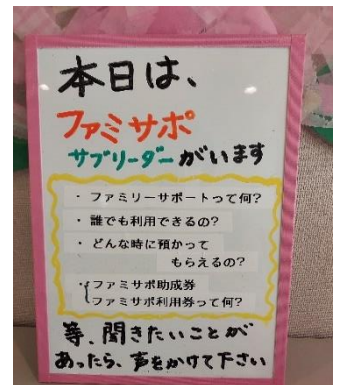 本日は、
ファミサポ
サブリーダーがいます
・ファミリーサポートって何?
・誰でも利用できるの?
・どんな時に預かって
もらえるの?
・{ファミサポ助成券
ファミサポ利用券って何?
等、聞きたいことが
あったら、声をかけて下さい